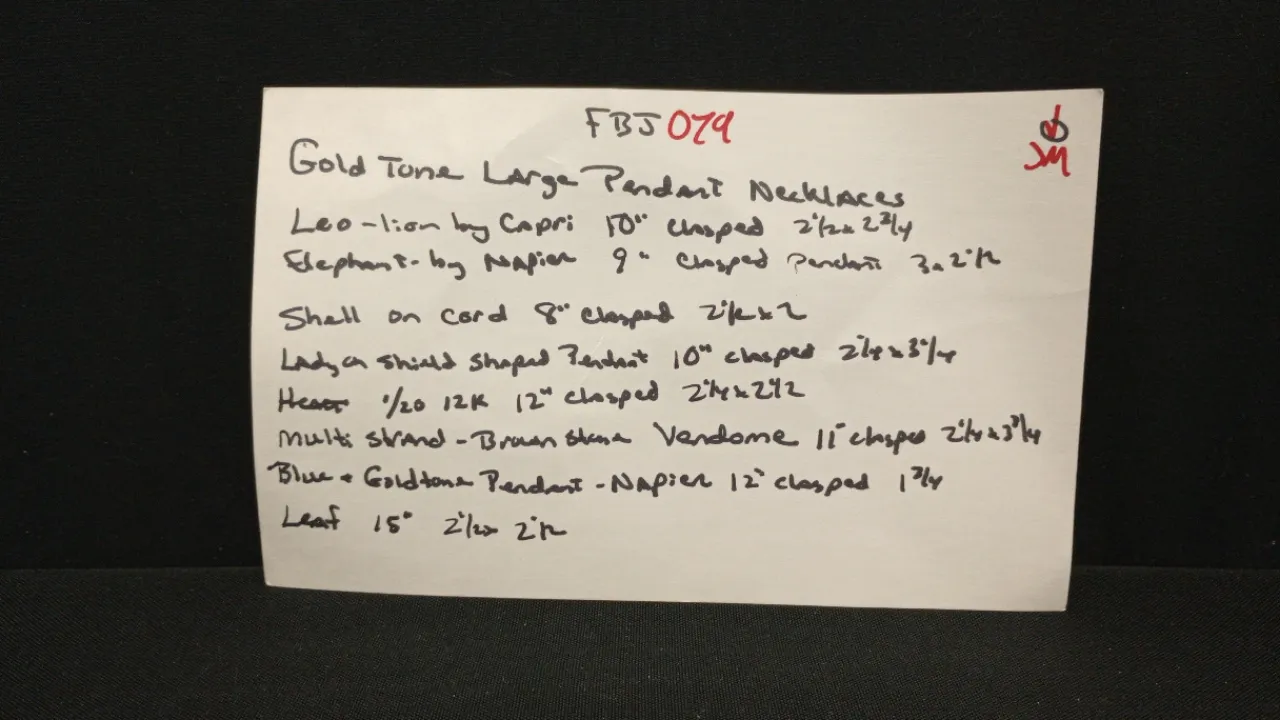 FBJ 079
JM
Gold Tone Large Pendant Necklaces
Leo-lion by Capri 10" clasped 2 1/2 x 2 3/4
Elephant-by Napier 9" clasped Pendant 3 x 2 1/2
Shell on cord 8" clasped 2 1/2 x 2
Lady on shield shaped Pendant 10" clasped 2 1/4 x 3 1/4
Heart 1/20 12K 12" clasped 2 1/4 x 2 1/2
Multi Strand - Brown stone Vendome 11" clasped 2 1/4 x 3 3/4
Blue + Goldtone Pendant - Napier 12" clasped 1 3/4
Leaf 15" 2 1/2 x 2 1/2